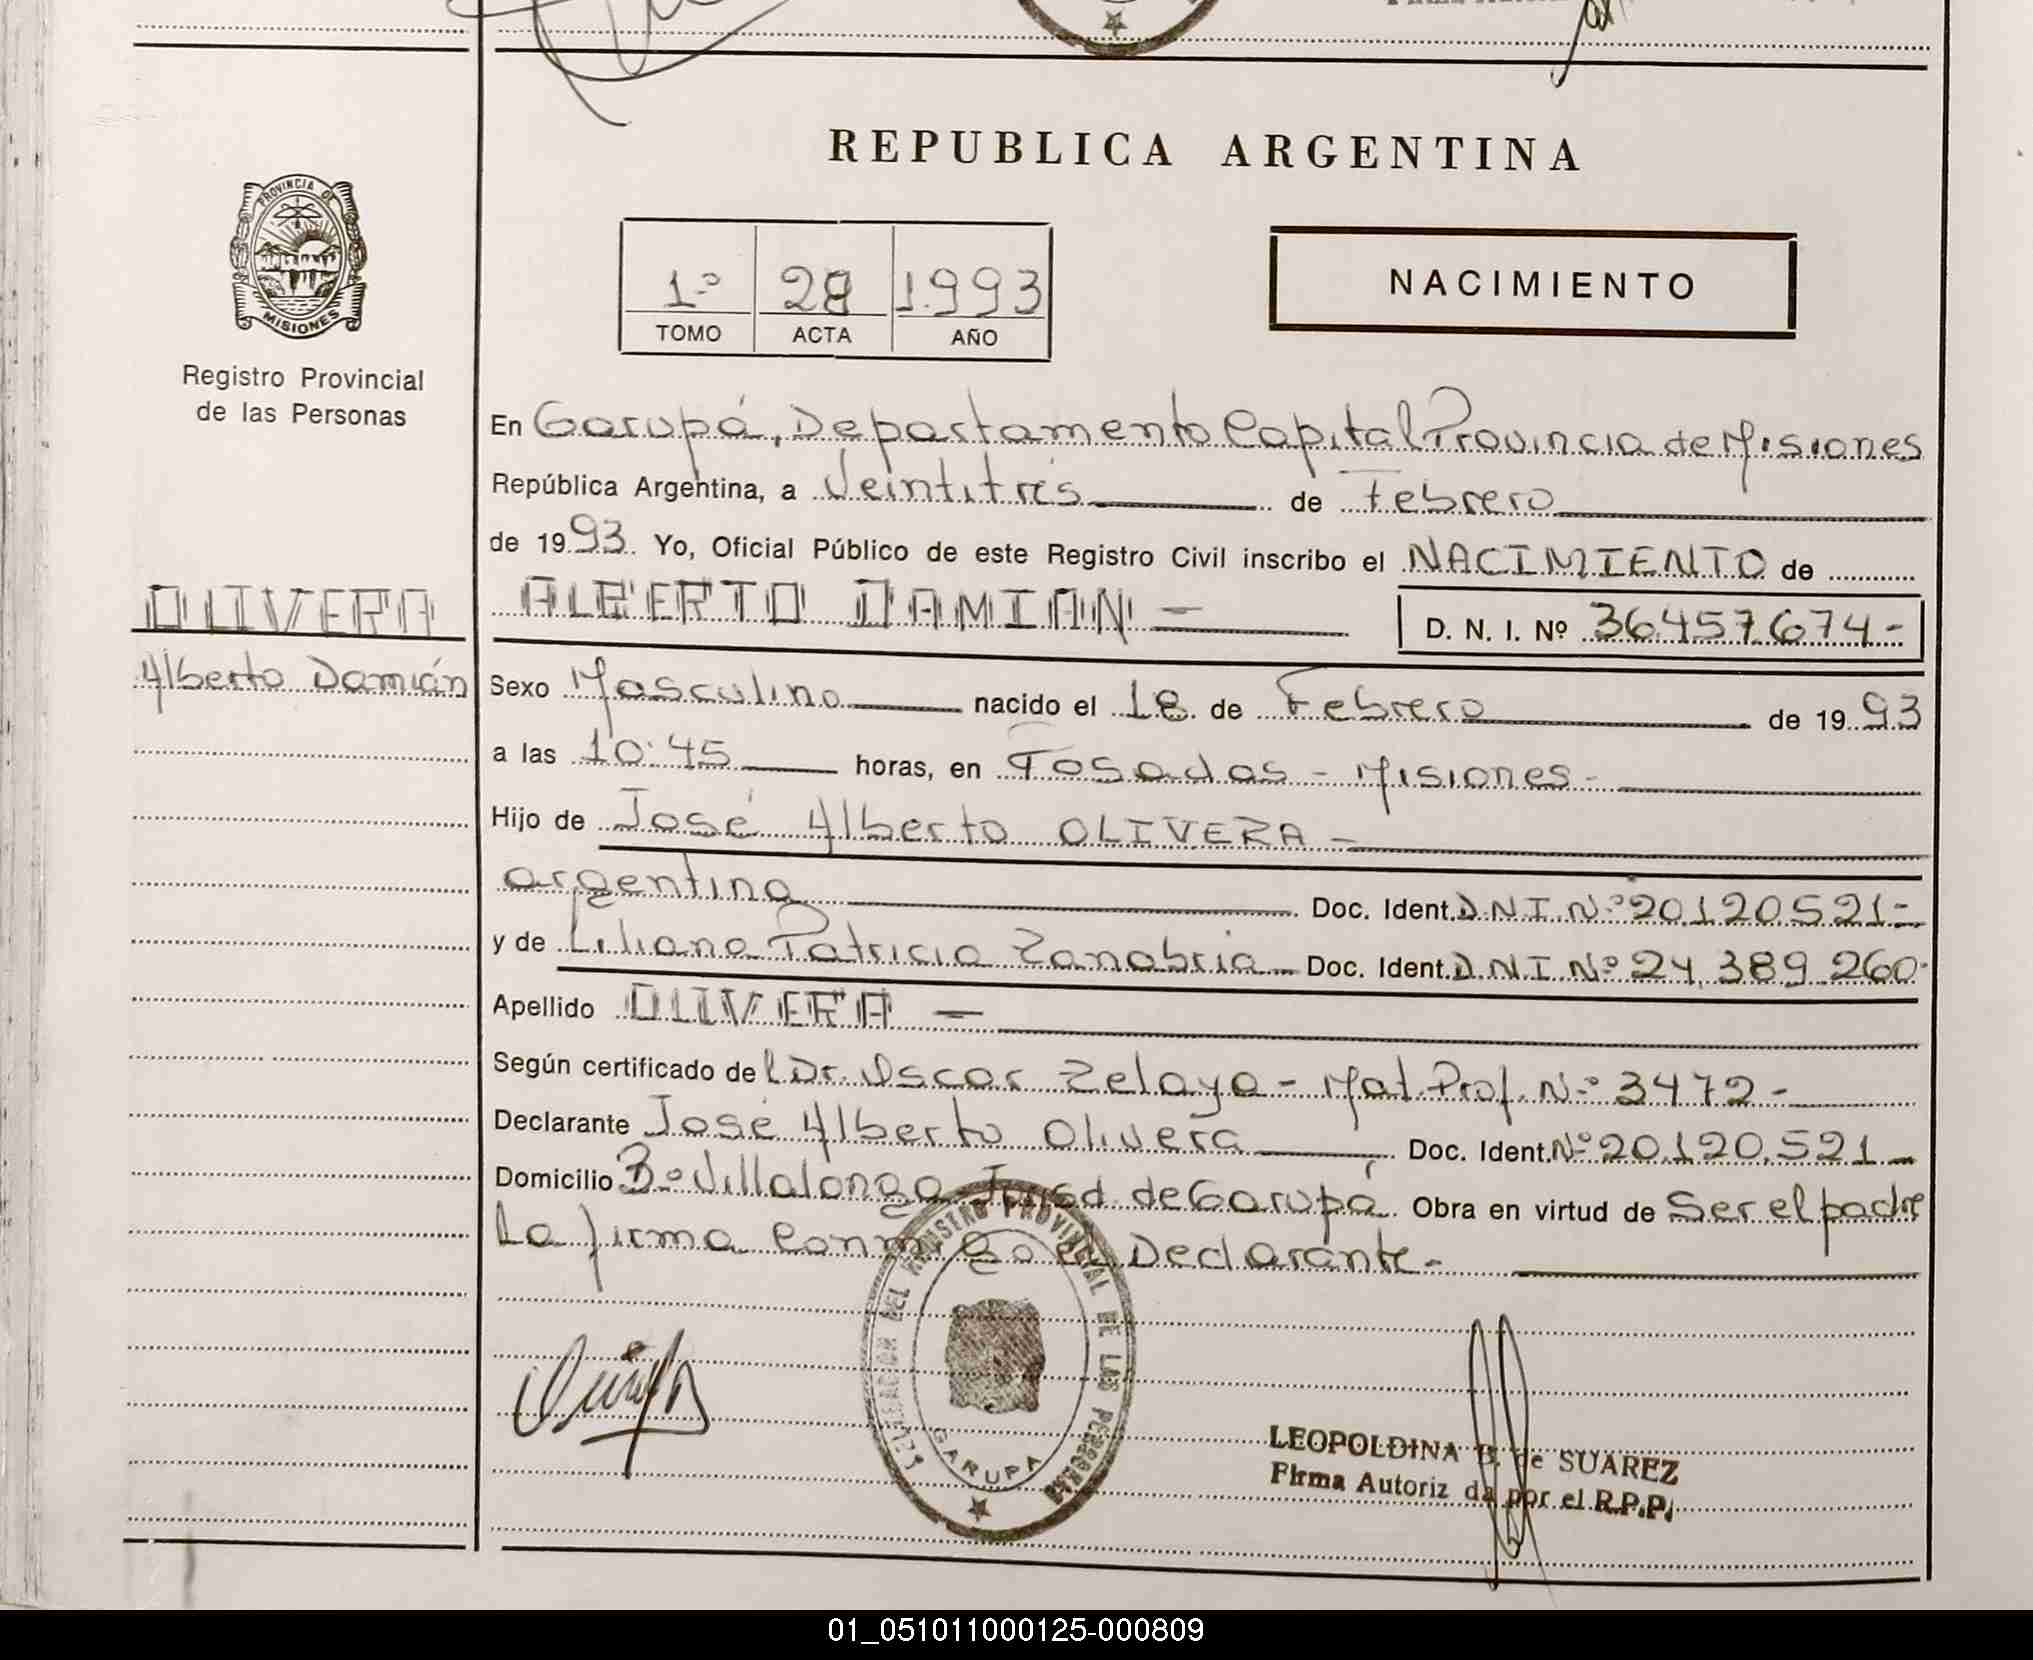 REPUBLICA ARGENTINA
PROVINCIA DE MISIONES
Registro Provincial
de las Personas
1º 28 1.993
TOMO ACTA AÑO
NACIMIENTO
En Garupá, Departamento Capital Provincia de Misiones
República Argentina, a Veintitrés de Febrero
de 1993. Yo, Oficial Público de este Registro Civil inscribo el NACIMIENTO de
OLIVERA
Alberto Damián
ALBERTO DAMIAN - D. N. I. Nº 36.457.674-
Sexo Masculino nacido el 18 de Febrero de 1993
a las 10:45 horas, en Posadas - Misiones-
Hijo de José Alberto OLIVERA -
argentino Doc. Ident. D.N.I. Nº 20.120.521-
y de Liliana Patricia Zanabria Doc. Ident. D.N.I. Nº 24.389.260-
Apellido OLIVERA -
Según certificado del Dr. Oscar Zelaya - Mat. Prof. Nº 3472-
Declarante José Alberto Olivera Doc. Ident. Nº 20.120.521-
Domicilio Bº Villalonga Jurisd. de Garupá Obra en virtud de Ser el padre
La firma Conmigo el Declarante-
DEL REGISTRO PROVINCIAL DE LAS PERSONAS
GARUPA
LEOPOLDINA B. de SUAREZ
Firma Autorizada por el R.P.P.
01_051011000125-000809